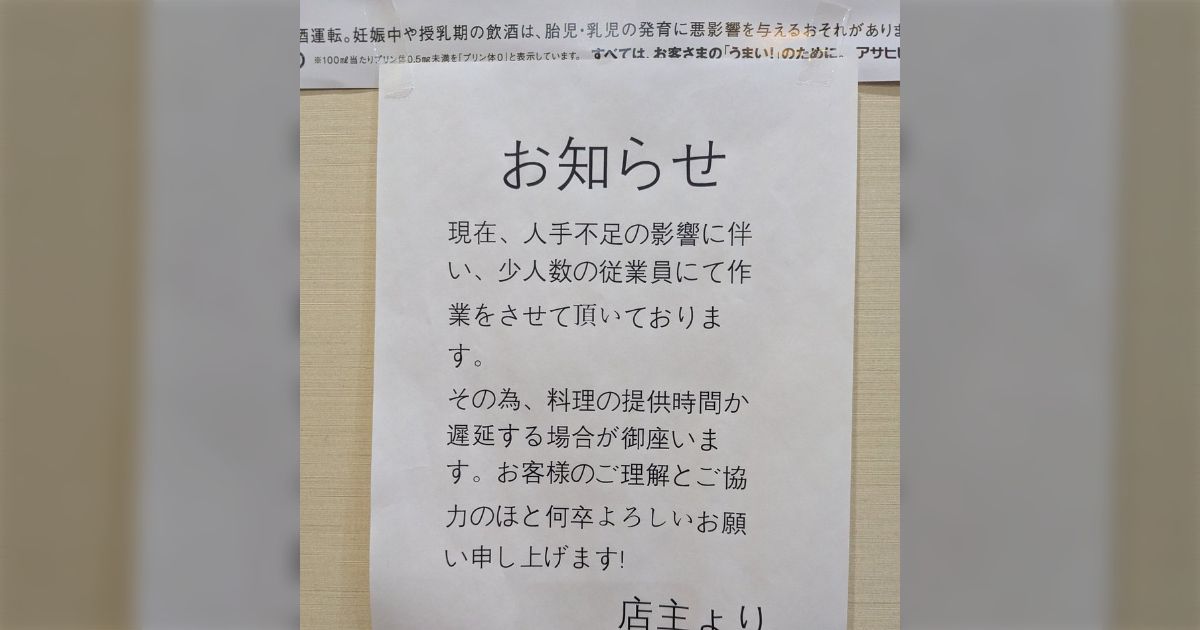 酒運転。妊娠中や授乳期の飲酒は、胎児・乳児の発育に悪影響を与えるおそれがありま
※100㎖当たりプリン体0.5㎎未満を「プリン体0」と表示しています。 すべては、お客さまの「うまい!」のために。 アサヒビ
お知らせ
現在、人手不足の影響に伴
い、少人数の従業員にて作
業をさせて頂いておりま
す。
その為、料理の提供時間か
遅延する場合が御座いま
す。お客様のご理解とご協
力のほと何卒よろしいお願
い申し上げます!
店主より